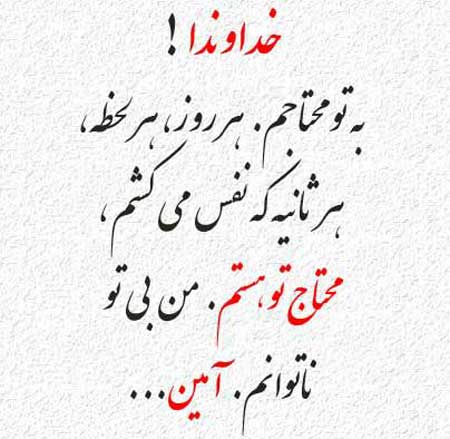 خداوندا !
به تو محتاجم. هر روز، هر لحظه،
هر ثانیه که نفس می کشم،
محتاج تو هستم. من بی تو
ناتوانم. آمین...